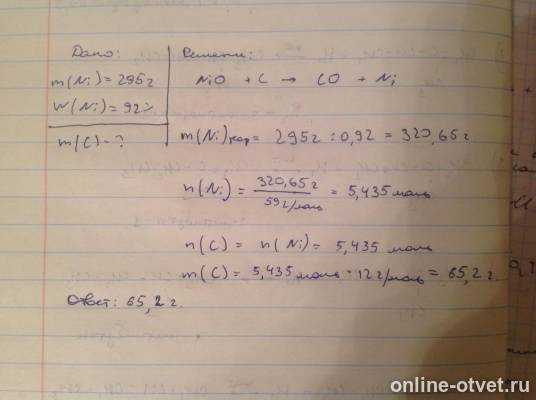 Дано:
m(Ni)=295г
W(Ni)=92%
m(C)-?
Решение:
NiO + C → CO + Ni
m(Ni)теор= 295г : 0,92 = 320,65г
n(Ni)= 320,65г / 59г/моль = 5,435моль
n(C) = n(Ni)= 5,435 моль
m(C)= 5,435моль · 12г/моль = 65,2г
Ответ: 65,2г.
online-otvet.ru